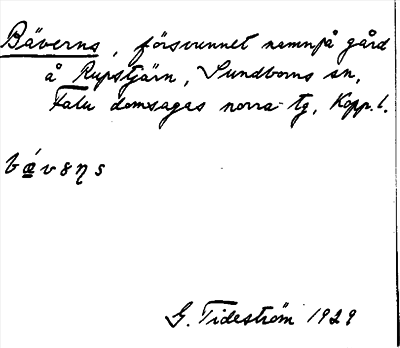 Bäverns, försvunnet namn på gård
å Rupstjärn, Sundborns sn,
Falu domsagas norra tg, Kopp. l.
G. Tideström 1929